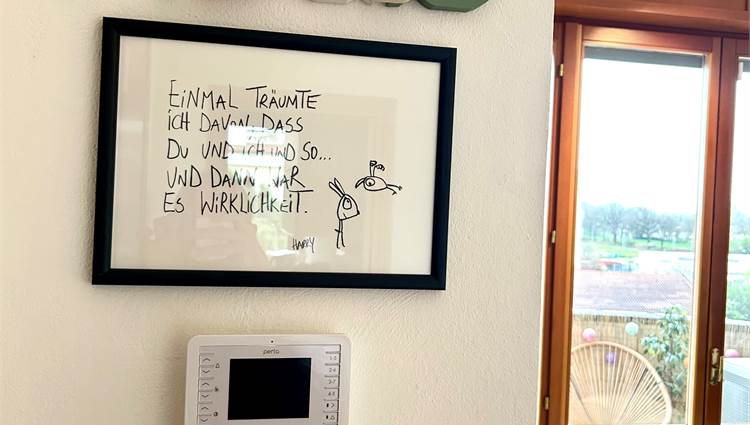 EiNMAL TRÄUMTE
iCH DAVON, DASS
DU UND iCH UND SO...
UND DANN WAR
ES WiRKLiCHKEiT.
HARRY
perla
1-○
2-○
3-○